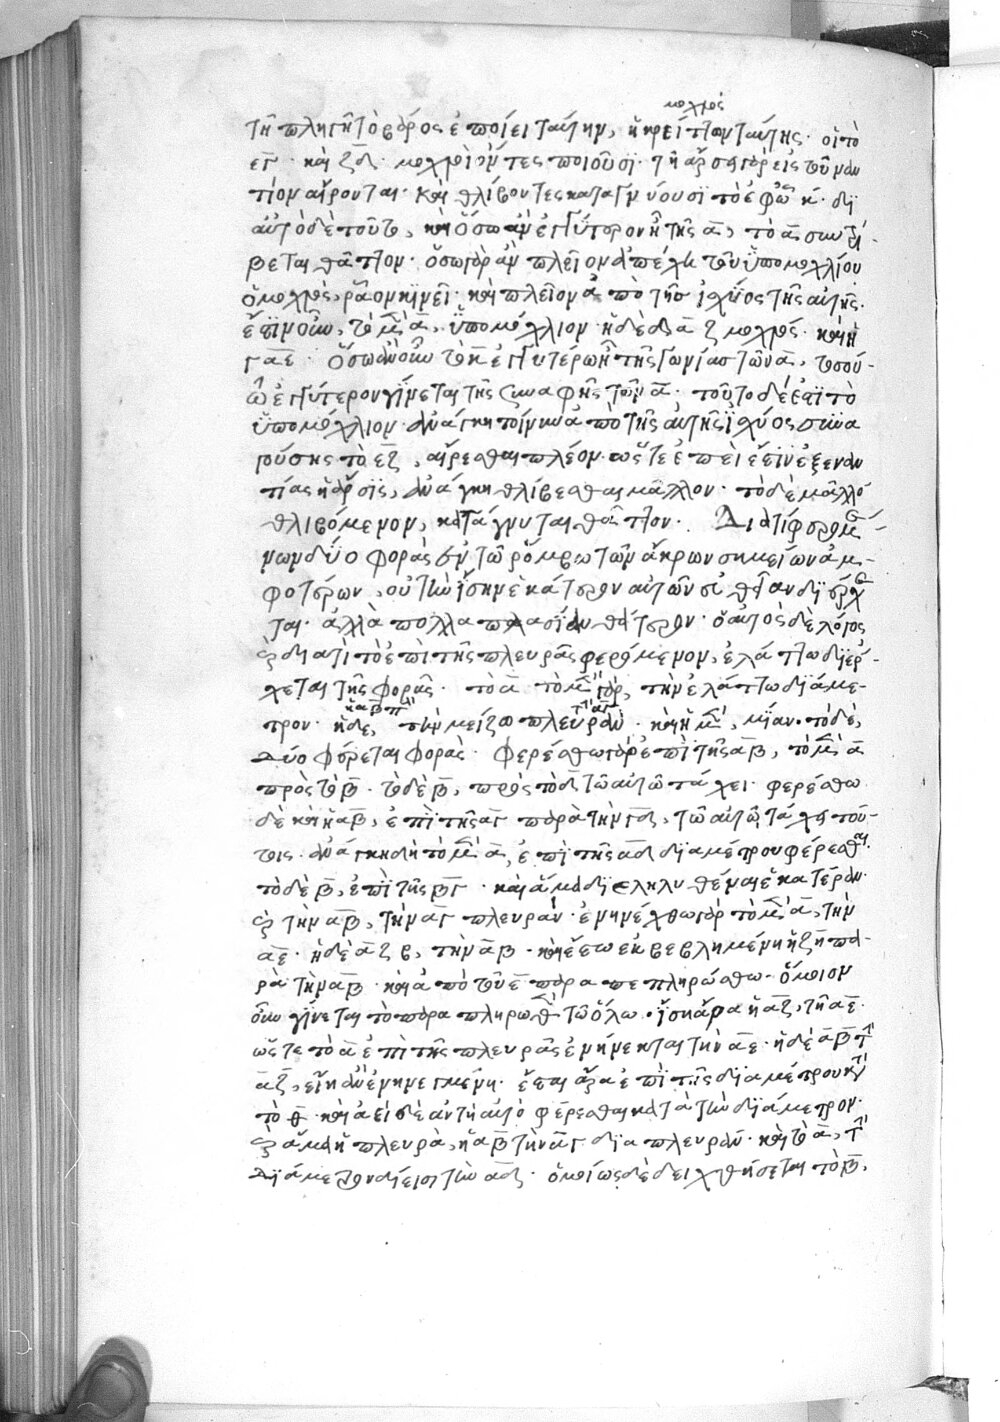 μοχλὸς
τῇ πληγῇ τὸ βάρος ἐποίει ταύτην, ἢ κρείττων ταύτης. οἱ τὸ
ε̅γ̅. καὶ ζ̅δ̅. μοχλοὶ ὄντες ποιοῦσϊ. τῇ ἄρσει γὰρ εἰς τοὐναν
τίον αἴρονται. καὶ θλίβοντες καταγνύουσϊ τὸ ἐφ ὧ κ̅. δϊ
αὐτὸ δὲ τοῦτο, καὶ ὅσω ἂν ἐγγύτερον ἦ τῆς α̅, τὸ κ̅ συντρί-
βεται θᾶττον. ὅσω γὰρ ἂν πλεῖον ἀπέχη τοῦ ὑπομοχλίου
ὁ μοχλὸς, ῥᾶον κϊνεῖ. καὶ πλεῖον ἀπὸ τῆς ἰσχύος τῆς αὐτῆς.
ἔστϊν οὖν, τὸ μὲν α̅, ὑπομόχλιον. ἡ δὲ δ̅α̅ζ̅ μοχλός. καὶ ἡ
γ̅α̅ε̅. ὅσω ἂν οὖν τὸ κ̅ ἐγγυτέρω ἦ τῆς γωνίας τῶν α̅, τοσού-
τω ἐγγύτερον γίνεται τῆς συναφῆς τῶν α̅. τοῦτο δέ ἐστϊ τὸ
ὑπομόχλιον. ἀνάγκη τοίνυν ἀπὸ τῆς αὐτῆς ἰσχύος συνα
γούσης τὸ ε̅ζ̅, αἴρεσθαι πλέον. ὥστε ἐπεὶ ἐστϊν ἐξ ἐναν
τίας ἡ ἄρσϊς, ἀνάγκη θλίβεσθαι μᾶλλον. τὸ δὲ μᾶλλον
θλιβόμενον, κατάγνυται θᾶττον. Διατί φερομέ-
νων δύο φορὰς ἐν τῶ ῥόμβω τῶν ἄκρων σημείων ἀμ-
φοτέρων, οὐ τὴν ἴσην ἑκάτερον αὐτῶν εὐθεῖαν διέρχε
ται. ἀλλὰ πολλαπλασίαν θάτερον. ὁ αὐτὸς δὲ λόγος
καὶ διατί τὸ ἐπὶ τῆς πλευρᾶς φερόμενον, ἐλάττω διέρ-
χεται τῆς φορᾶς. τὸ α̅ τὸ μὲν γὰρ, τὴν ἐλάττω διάμε-
ἡ α̅β̅ τὴν α̅γ̅
τρον. ἡ δὲ, τὴν μείζω πλευράν. καὶ ἡ μὲν, μίαν. τὸ δὲ,
δύο φέρεται φοράς. φερέσθω γὰρ ἐπὶ τῆς α̅β̅, τὸ μὲν α̅
πρὸς τὸ β̅. τὸ δὲ β̅, πρὸς τὸ δ̅ τῶ αὐτῶ τάχει. φερέσθω
δὲ καὶ ἡ α̅β̅, ἐπὶ τῆς α̅γ̅ παρὰ τὴν γ̅δ̅, τῶ αὐτῶ τάχει τού-
τοις. ἀνάγκη δὴ τὸ μὲν α̅, ἐπὶ τῆς α̅δ̅ διαμέτρου φέρεσθαι.
τὸ δὲ β̅, ἐπὶ τῆς β̅γ̅. καὶ ἅμα διεληλυθέναι ἑκατέραν.
καὶ τὴν α̅β̅, τὴν α̅γ̅ πλευράν. ἐνηνέχθω γὰρ τὸ μὲν α̅, τὴν
α̅ε̅. ἡ δὲ α̅ζ̅β̅, τὴν α̅β̅. καὶ ἔστω ἐκβεβλημένη ἡ ζ̅η̅ πα-
ρὰ τὴν α̅β̅. καὶ ἀπὸ τοῦ ε̅ παραπεπληρώσθω. ὅμοιον
οὖν γίνεται τὸ παραπληρωθὲν τῶ ὅλω. ἴση ἄρα ἡ α̅ζ̅, τῆ α̅ε̅.
ὥστε τὸ α̅ ἐπὶ τῆς πλευρᾶς ἐνήνεκται τὴν α̅ε̅. ἡ δὲ α̅β̅ τὴν
α̅ζ̅, εἴη ἂν ἐνηνεγμένη. ἔσται ἄρα ἐπὶ τῆς διαμέτρου κατὰ
τὸ θ̅. καὶ ἀεὶ δὲ ἀνάγκη αὐτὸ φέρεσθαι κατὰ τὴν διάμετρον.
καὶ ἅμα ἡ πλευρὰ, ἡ α̅β̅ τὴν α̅γ̅ δίεισι πλευράν. καὶ τὸ α̅, τὴν
διάμετρον δίεισι τὴν α̅δ̅. ὁμοίως δὲ δειχθήσεται τὸ β̅,